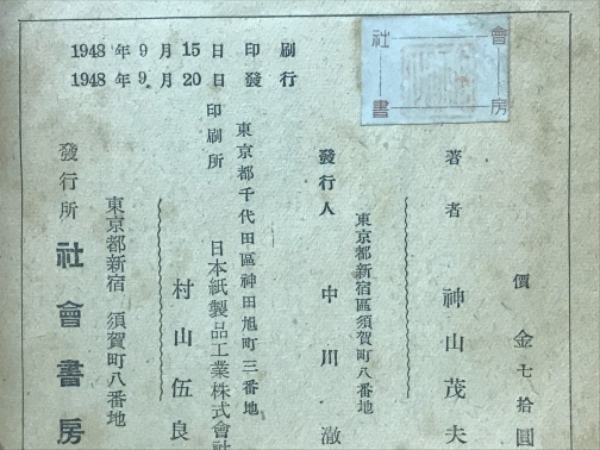 1948年9月15日 印刷
1948年9月20日 發行
社會書房
價金七拾圓
著者 神山茂夫
東京都新宿區須賀町八番地
發行人 中川澈
東京都千代田區神田旭町三番地
印刷所 日本紙製品工業株式會社
村山伍良
東京都新宿 須賀町八番地
發行所 社會書房